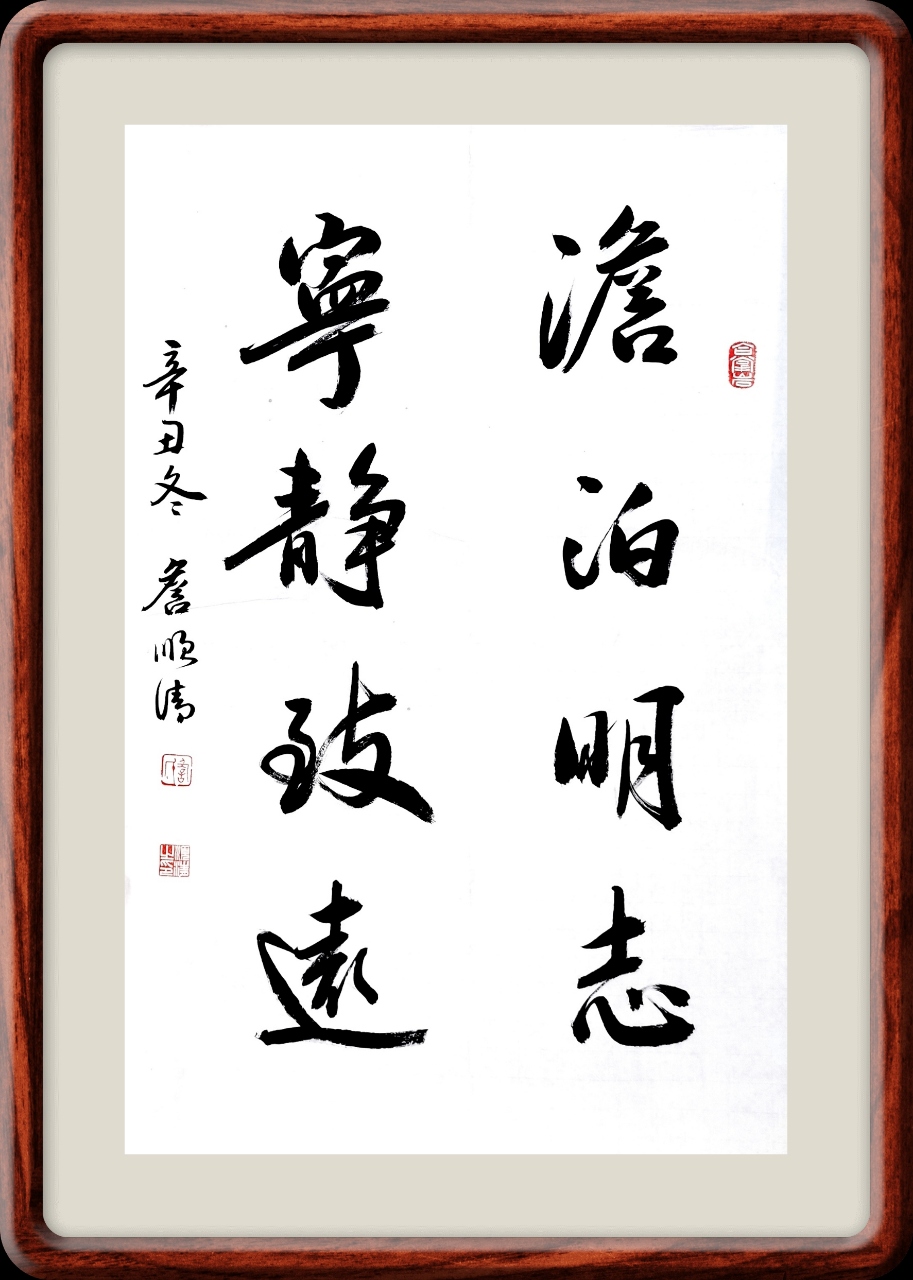 澹泊明志
寧静致遠
辛丑冬 詹順清